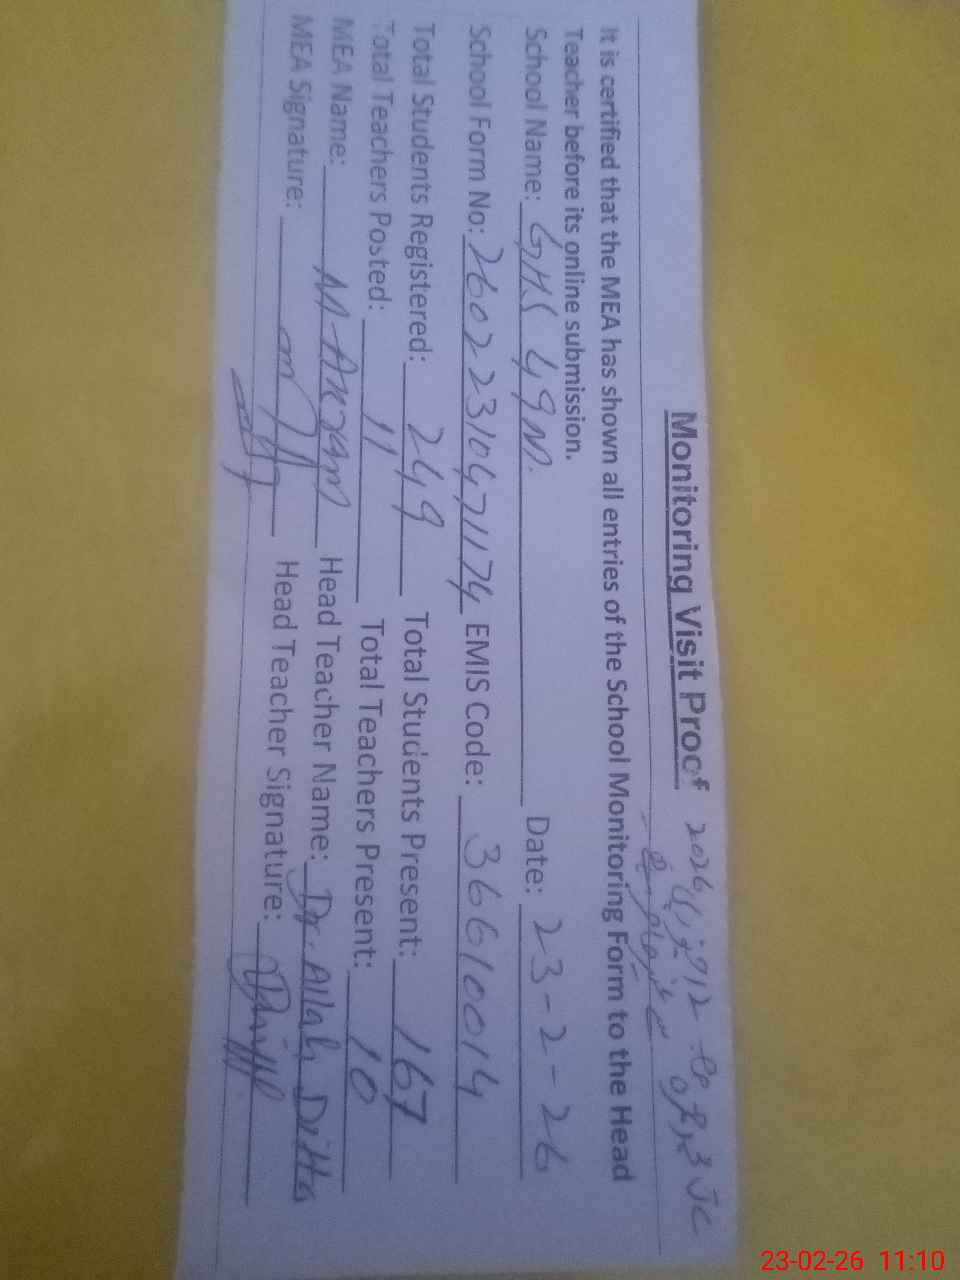 Monitoring Visit Proof 2026
It is certified that the MEA has shown all entries of the School Monitoring Form to the Head
Teacher before its online submission.
School Name: GHS 49M. Date: 23-2-26
School Form No: EMIS Code: 36610014
Total Students Registered: 249 Total Students Present: 167
Total Teachers Posted: 11 Total Teachers Present: 10
MEA Name: M Akram Head Teacher Name: Dr. Allah Ditta
MEA Signature: Head Teacher Signature:
23-02-26 11:10